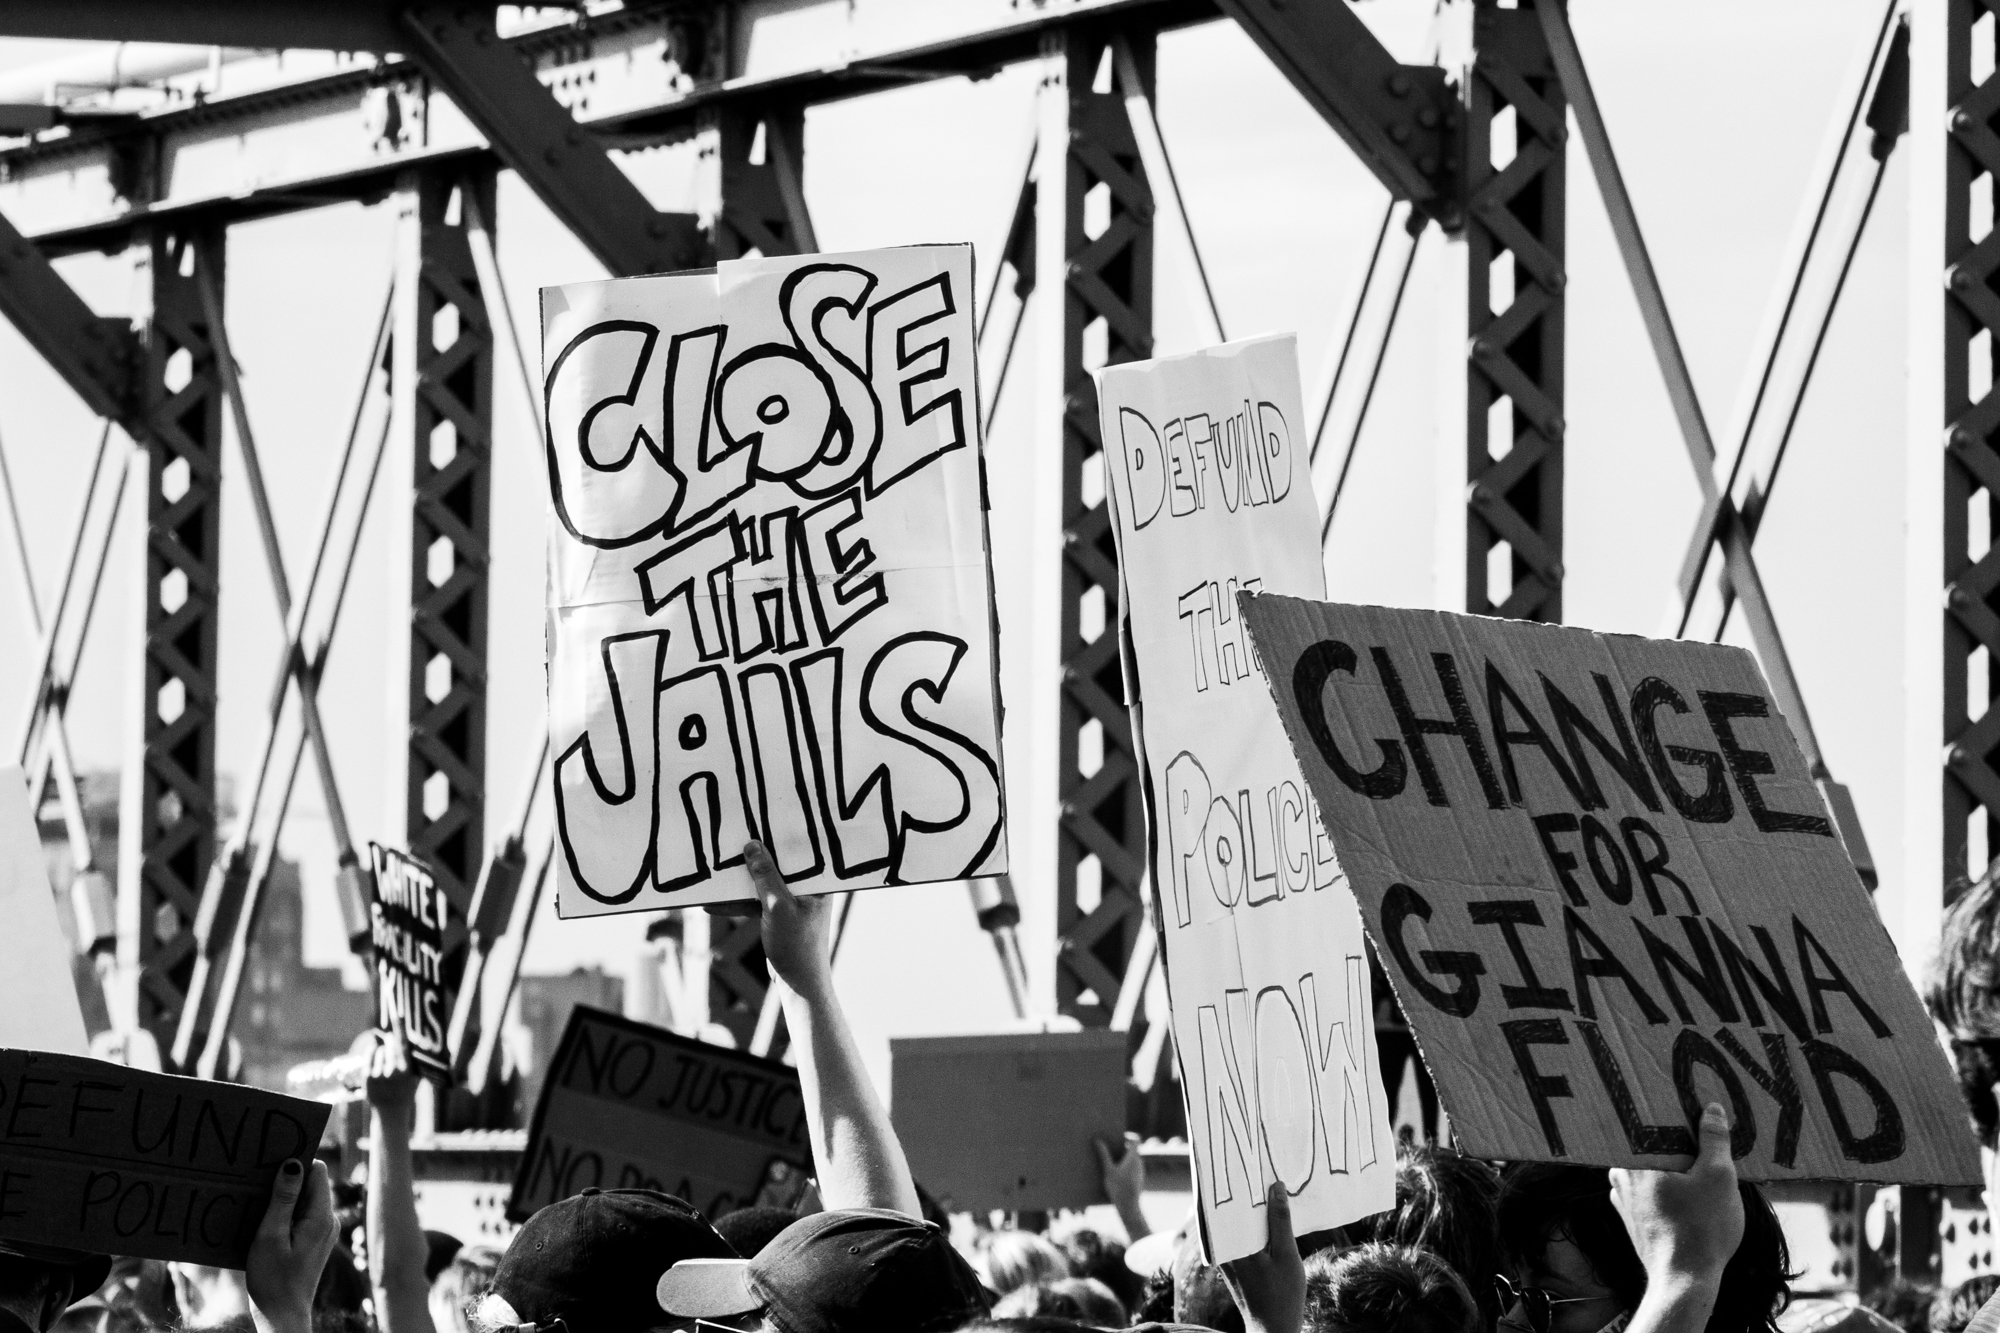 CLOSE
THE
JAILS
DEFUND
POLICE
NOW
CHANGE
FOR
GIANNA
FLOYD
WHITE
KILLS
NO JUSTICE
NO
DEFUND
POLICE